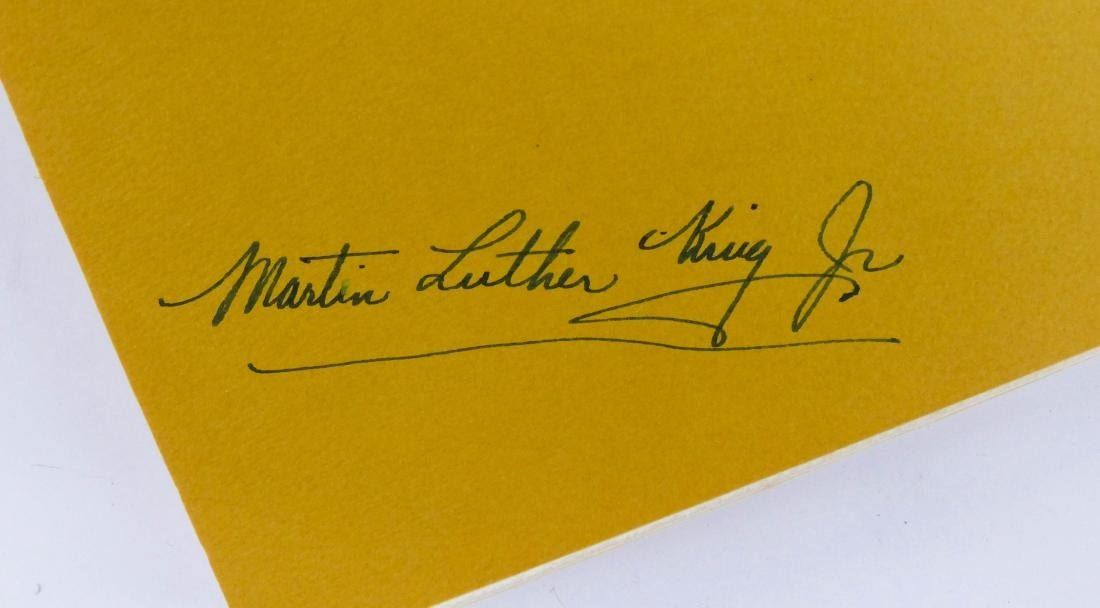 Martin Luther King Jr